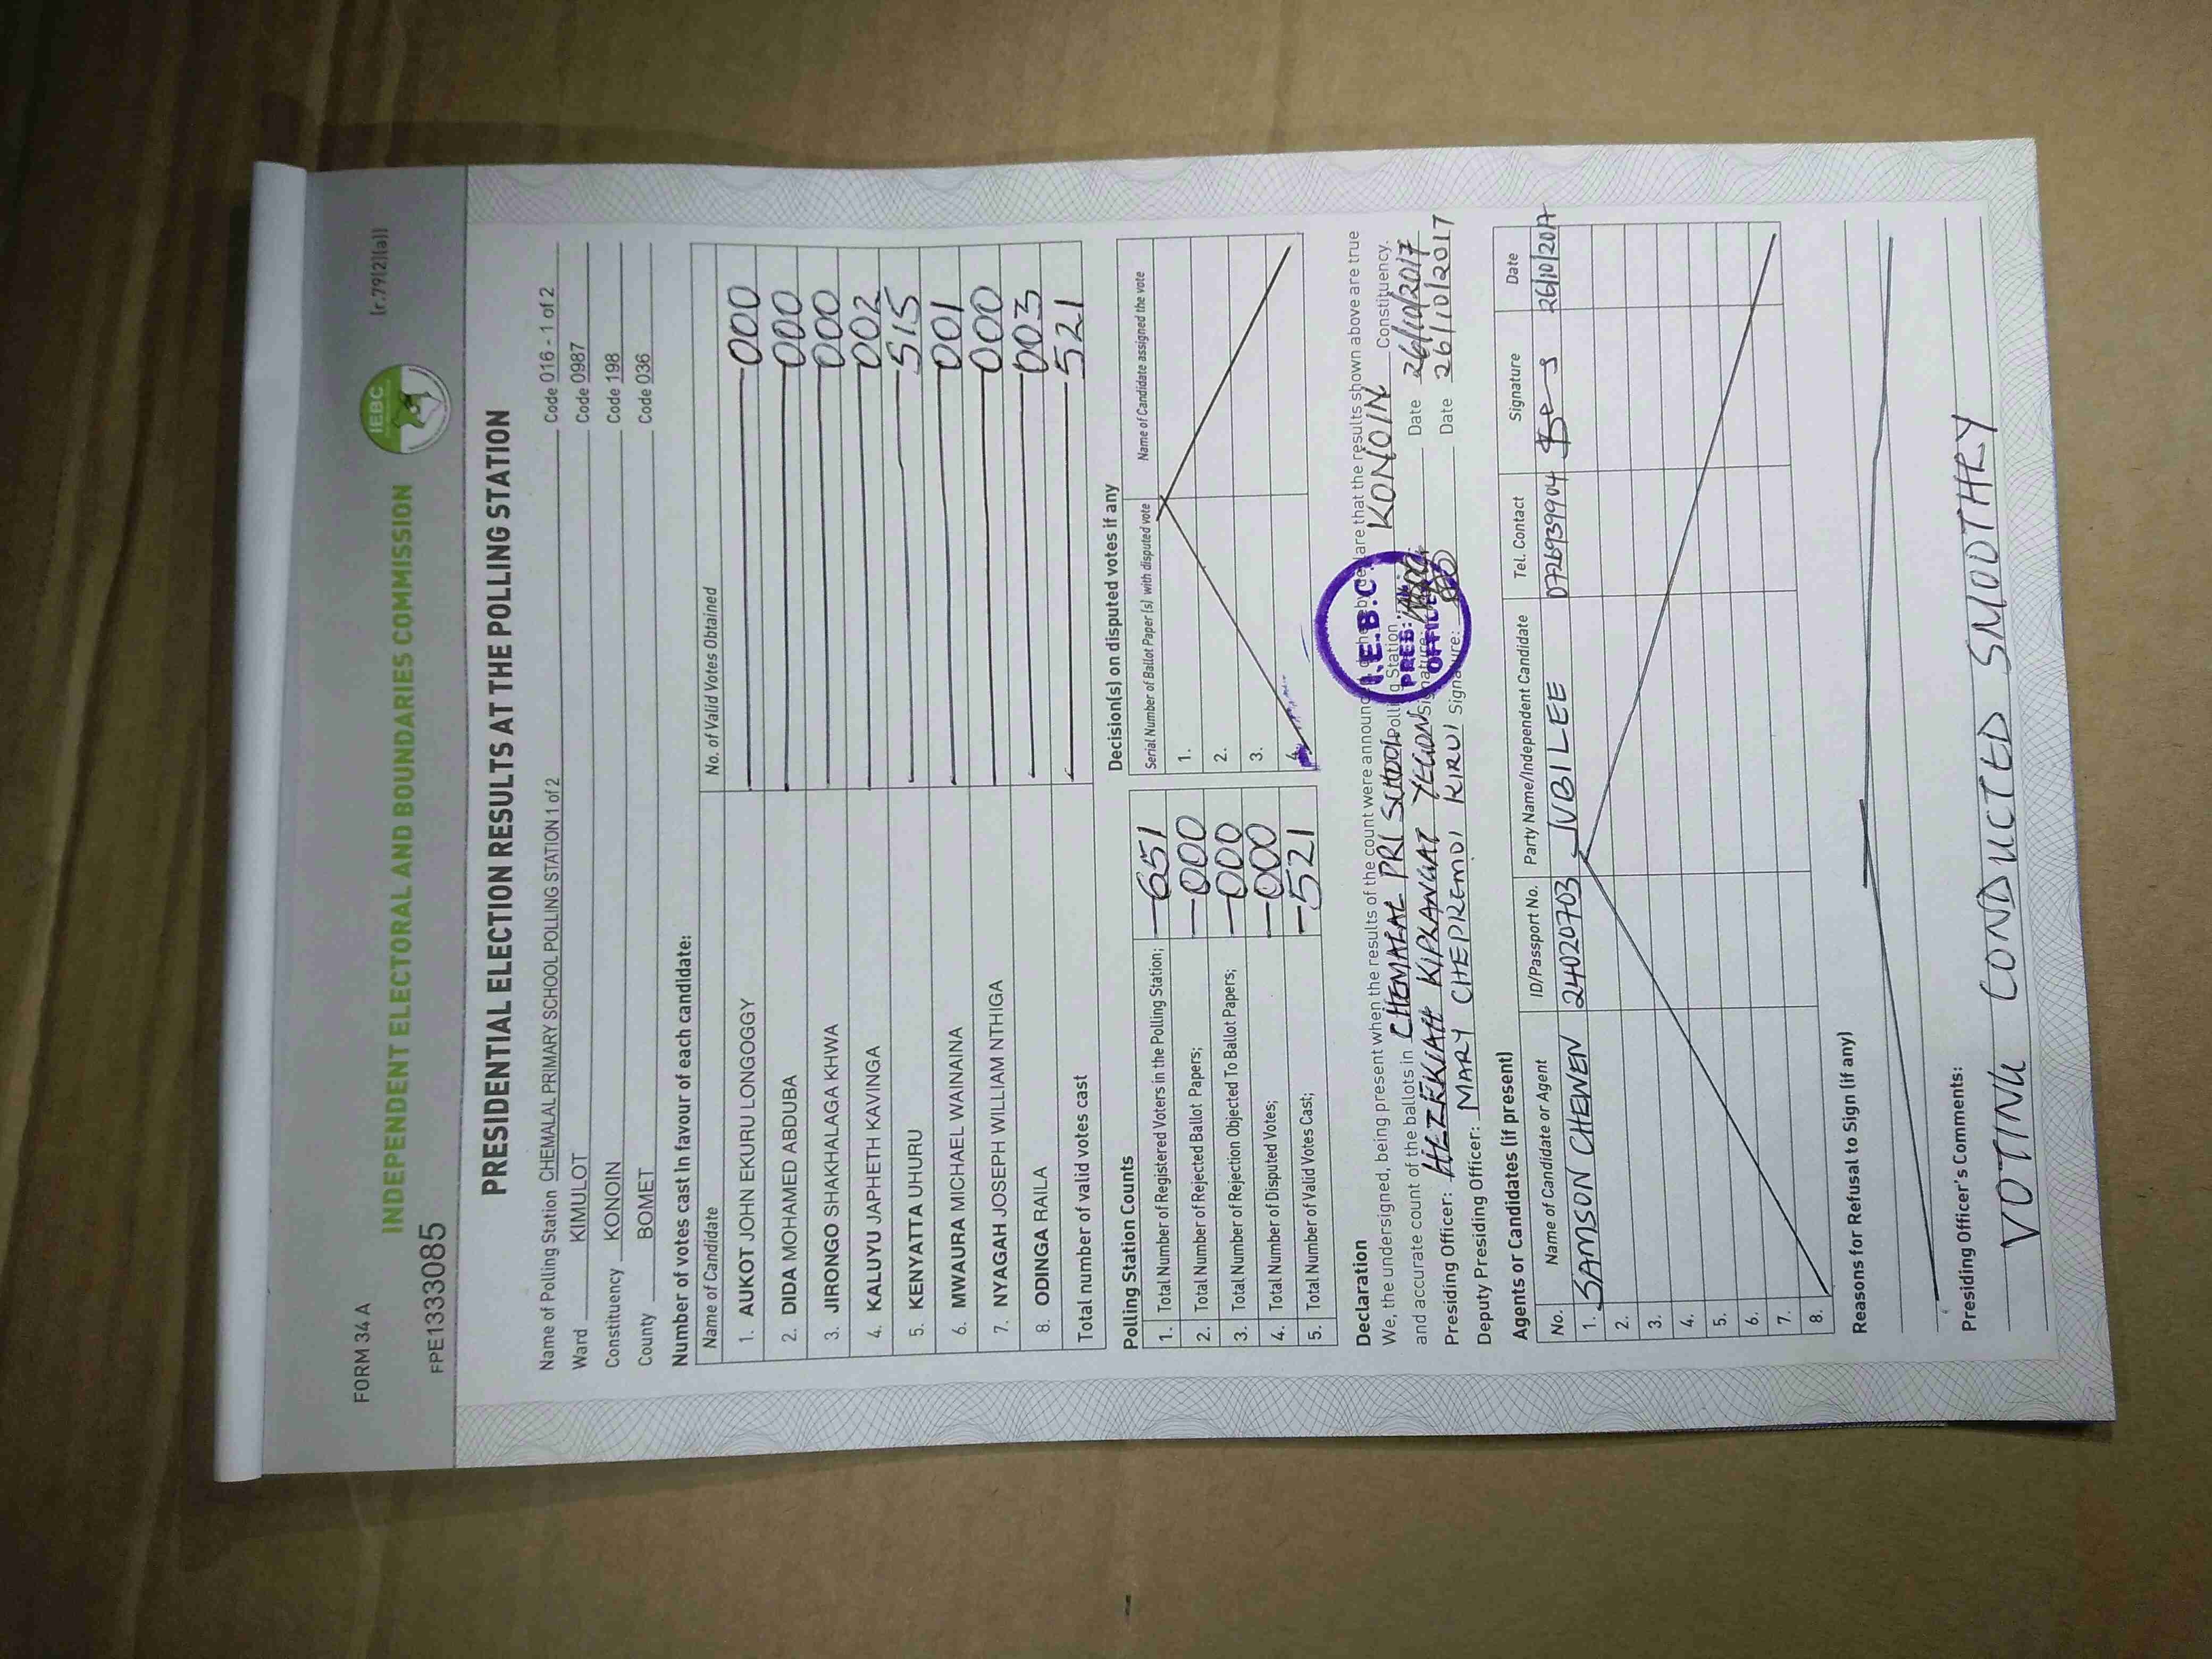 FORM 34 A
[r.79(2)(a)]
IEBC
INDEPENDENT ELECTORAL AND BOUNDARIES COMMISSION
FPE1333085
PRESIDENTIAL ELECTION RESULTS AT THE POLLING STATION
Name of Polling Station CHEMALAL PRIMARY SCHOOL POLLING STATION 1 of 2 Code 016 - 1 of 2
Ward KIMULOT Code 0987
Constituency KONOIN Code 198
County BOMET Code 036
Number of votes cast In favour of each candidate:
Name of Candidate No. of Valid Votes Obtained
1. AUKOT JOHN EKURU LONGOGGY 000
2. DIDA MOHAMED ABDUBA 000
3. JIRONGO SHAKHALAGA KHWA 000
4. KALUYU JAPHETH KAVINGA 002
5. KENYATTA UHURU 515
6. MWAURA MICHAEL WAINAINA 001
7. NYAGAH JOSEPH WILLIAM NTHIGA 000
8. ODINGA RAILA 003
Total number of valid votes cast 521
Polling Station Counts
1. Total Number of Registered Voters in the Polling Station; 651
2. Total Number of Rejected Ballot Papers; 000
3. Total Number of Rejection Objected To Ballot Papers; 000
4. Total Number of Disputed Votes; 000
5. Total Number of Valid Votes Cast; 521
Decision(s) on disputed votes if any
Serial Number of Ballot Paper (s) with disputed vote Name of Candidate assigned the vote
1.
2.
3.
4.
Declaration
We, the undersigned, being present when the results of the count were announced hereby declare that the results shown above are true
and accurate count of the ballots in CHEMALAL PRI SCHOOL Polling Station KONOIN Constituency.
Presiding Officer: HEZEKIAH KIPLANGAT YEGON Signature: Date 26/10/2017
Deputy Presiding Officer: MARY CHEPKEMOI KIRUI Signature: Date 26/10/2017
I.E.B.C
PRES:
OFFICER
Agents or Candidates (if present)
No. Name of Candidate or Agent ID/Passport No. Party Name/Independent Candidate Tel. Contact Signature Date
1. SAMSON CHEWEN 24020703 JUBILEE 0726939904 26/10/2017
2.
3.
4.
5.
6.
7.
8.
Reasons for Refusal to Sign (if any)
Presiding Officer's Comments:
VOTING CONDUCTED SMOOTHRY